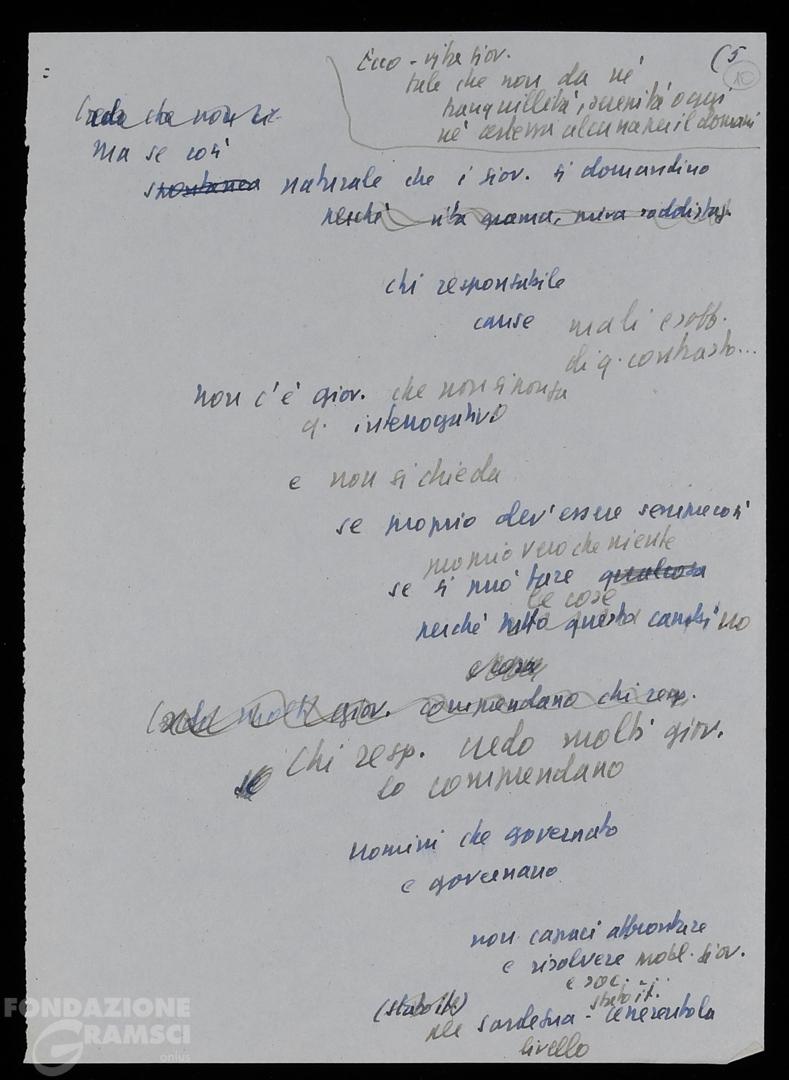 (5
10
Ecco - vita giov.
tale che non da né
tranquillità, serenità oggi
né certezza alcuna per il domani
Credo che non si
Ma se così
spontanea naturale che i giov. si domandino
perché vita grama, priva soddisfaz.
chi responsabile
cause mali e soff.
di q. contrasto...
Non c'è giov. che non si ponga
q. interrogativo
e non si chieda
se proprio dev'essere sempre così
proprio vero che niente
se si può fare qualcosa
le cose
perché tutto questo cambino
Credo molti giov. comprendano chi resp.
Chi resp. credo molti giov.
lo comprendano
uomini che governato
e governano
non capaci affrontare
e risolvere probl. giov.
e soc. ...
stato it.
(stato it.)
Sardegna - cenerentola
livello
FONDAZIONE
GRAMSCI
onlus